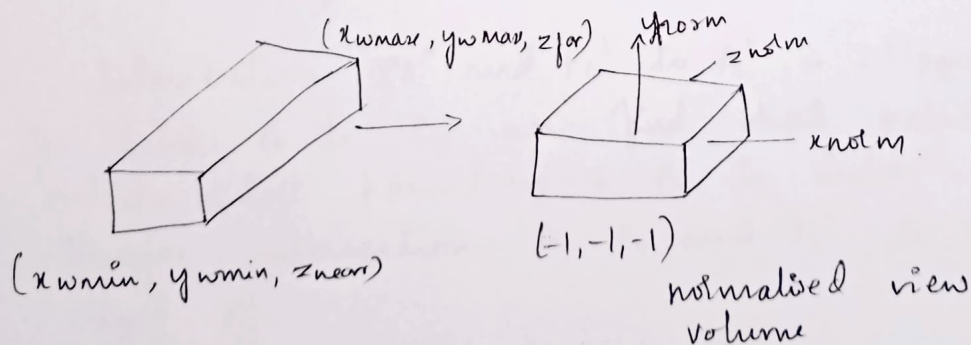 (xwmax, ywmax, zfar)
ynorm
znorm
xnorm
(-1,-1,-1)
(xwmin, ywmin, znear)
normalised view
volume